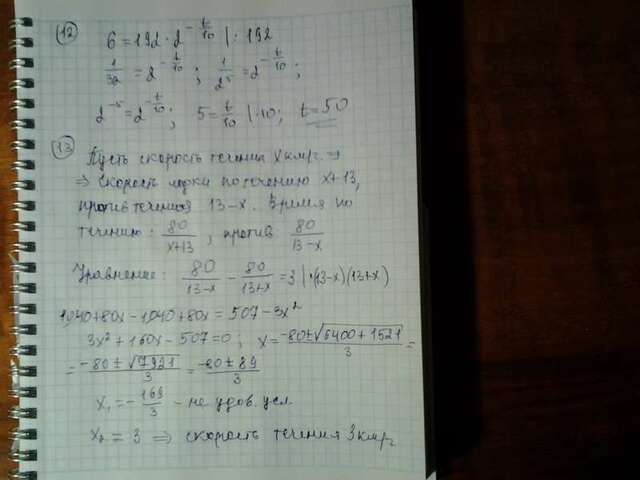 12 6 = 192 · 2^(-t/10) |: 192
1/32 = 2^(-t/10) ; 1/2^5 = 2^(-t/10) ;
2^(-5) = 2^(-t/10) ; 5 = t/10 |·10; t = 50
13 Пусть скорость течения x км/ч. ⇒
⇒ скорость лодки по течению x+13,
против течения 13-x. Время по
течению: 80/(x+13) , против 80/(13-x)
Уравнение: 80/(13-x) - 80/(13+x) = 3 |·(13-x)(13+x)
1040+80x-1040+80x = 507-3x²
3x²+160x-507=0 ; x = (-80±√(6400+1521))/3 =
= (-80±√7921)/3 = (-80±89)/3
x₁ = -169/3 - не удов. усл.
x₂ = 3 ⇒ скорость течения 3 км/ч